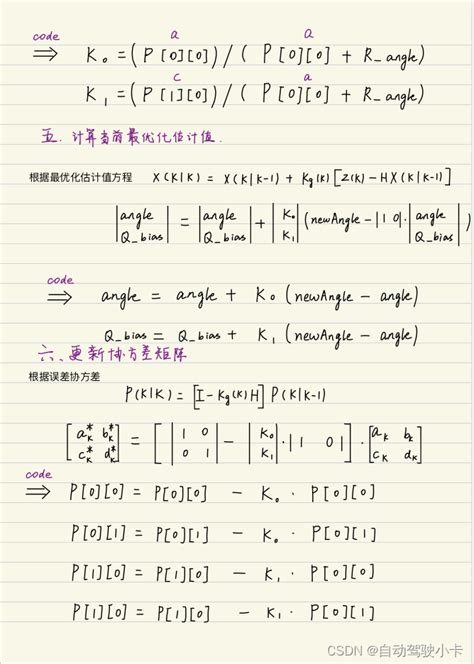 code a a
⇒ K₀ = (P[0][0]) / (P[0][0] + R_angle)
c a
K₁ = (P[1][0]) / (P[0][0] + R_angle)
五. 计算当前最优化估计值.
根据最优化估计值方程 X(K|K) = X(K|K-1) + Kg(K) [Z(K) - HX(K|K-1)]
|angle Q_bias| = |angle Q_bias| + |K₀ K₁| (newAngle - |1 0| · |angle Q_bias|)
code
⇒ angle = angle + K₀ (newAngle - angle)
Q_bias = Q_bias + K₁ (newAngle - angle)
六、更新协方差矩阵
根据误差协方差
P(K|K) = [I - Kg(K)H] P(K|K-1)
[aₖ* bₖ* cₖ* dₖ*] = [ |1 0 0 1| - |K₀ K₁| · |1 0| ] · [aₖ bₖ cₖ dₖ]
code
⇒ P[0][0] = P[0][0] - K₀ · P[0][0]
P[0][1] = P[0][1] - K₀ · P[0][1]
P[1][0] = P[1][0] - K₁ · P[0][0]
P[1][0] = P[1][0] - K₁ · P[0][1]
CSDN @自动驾驶小卡